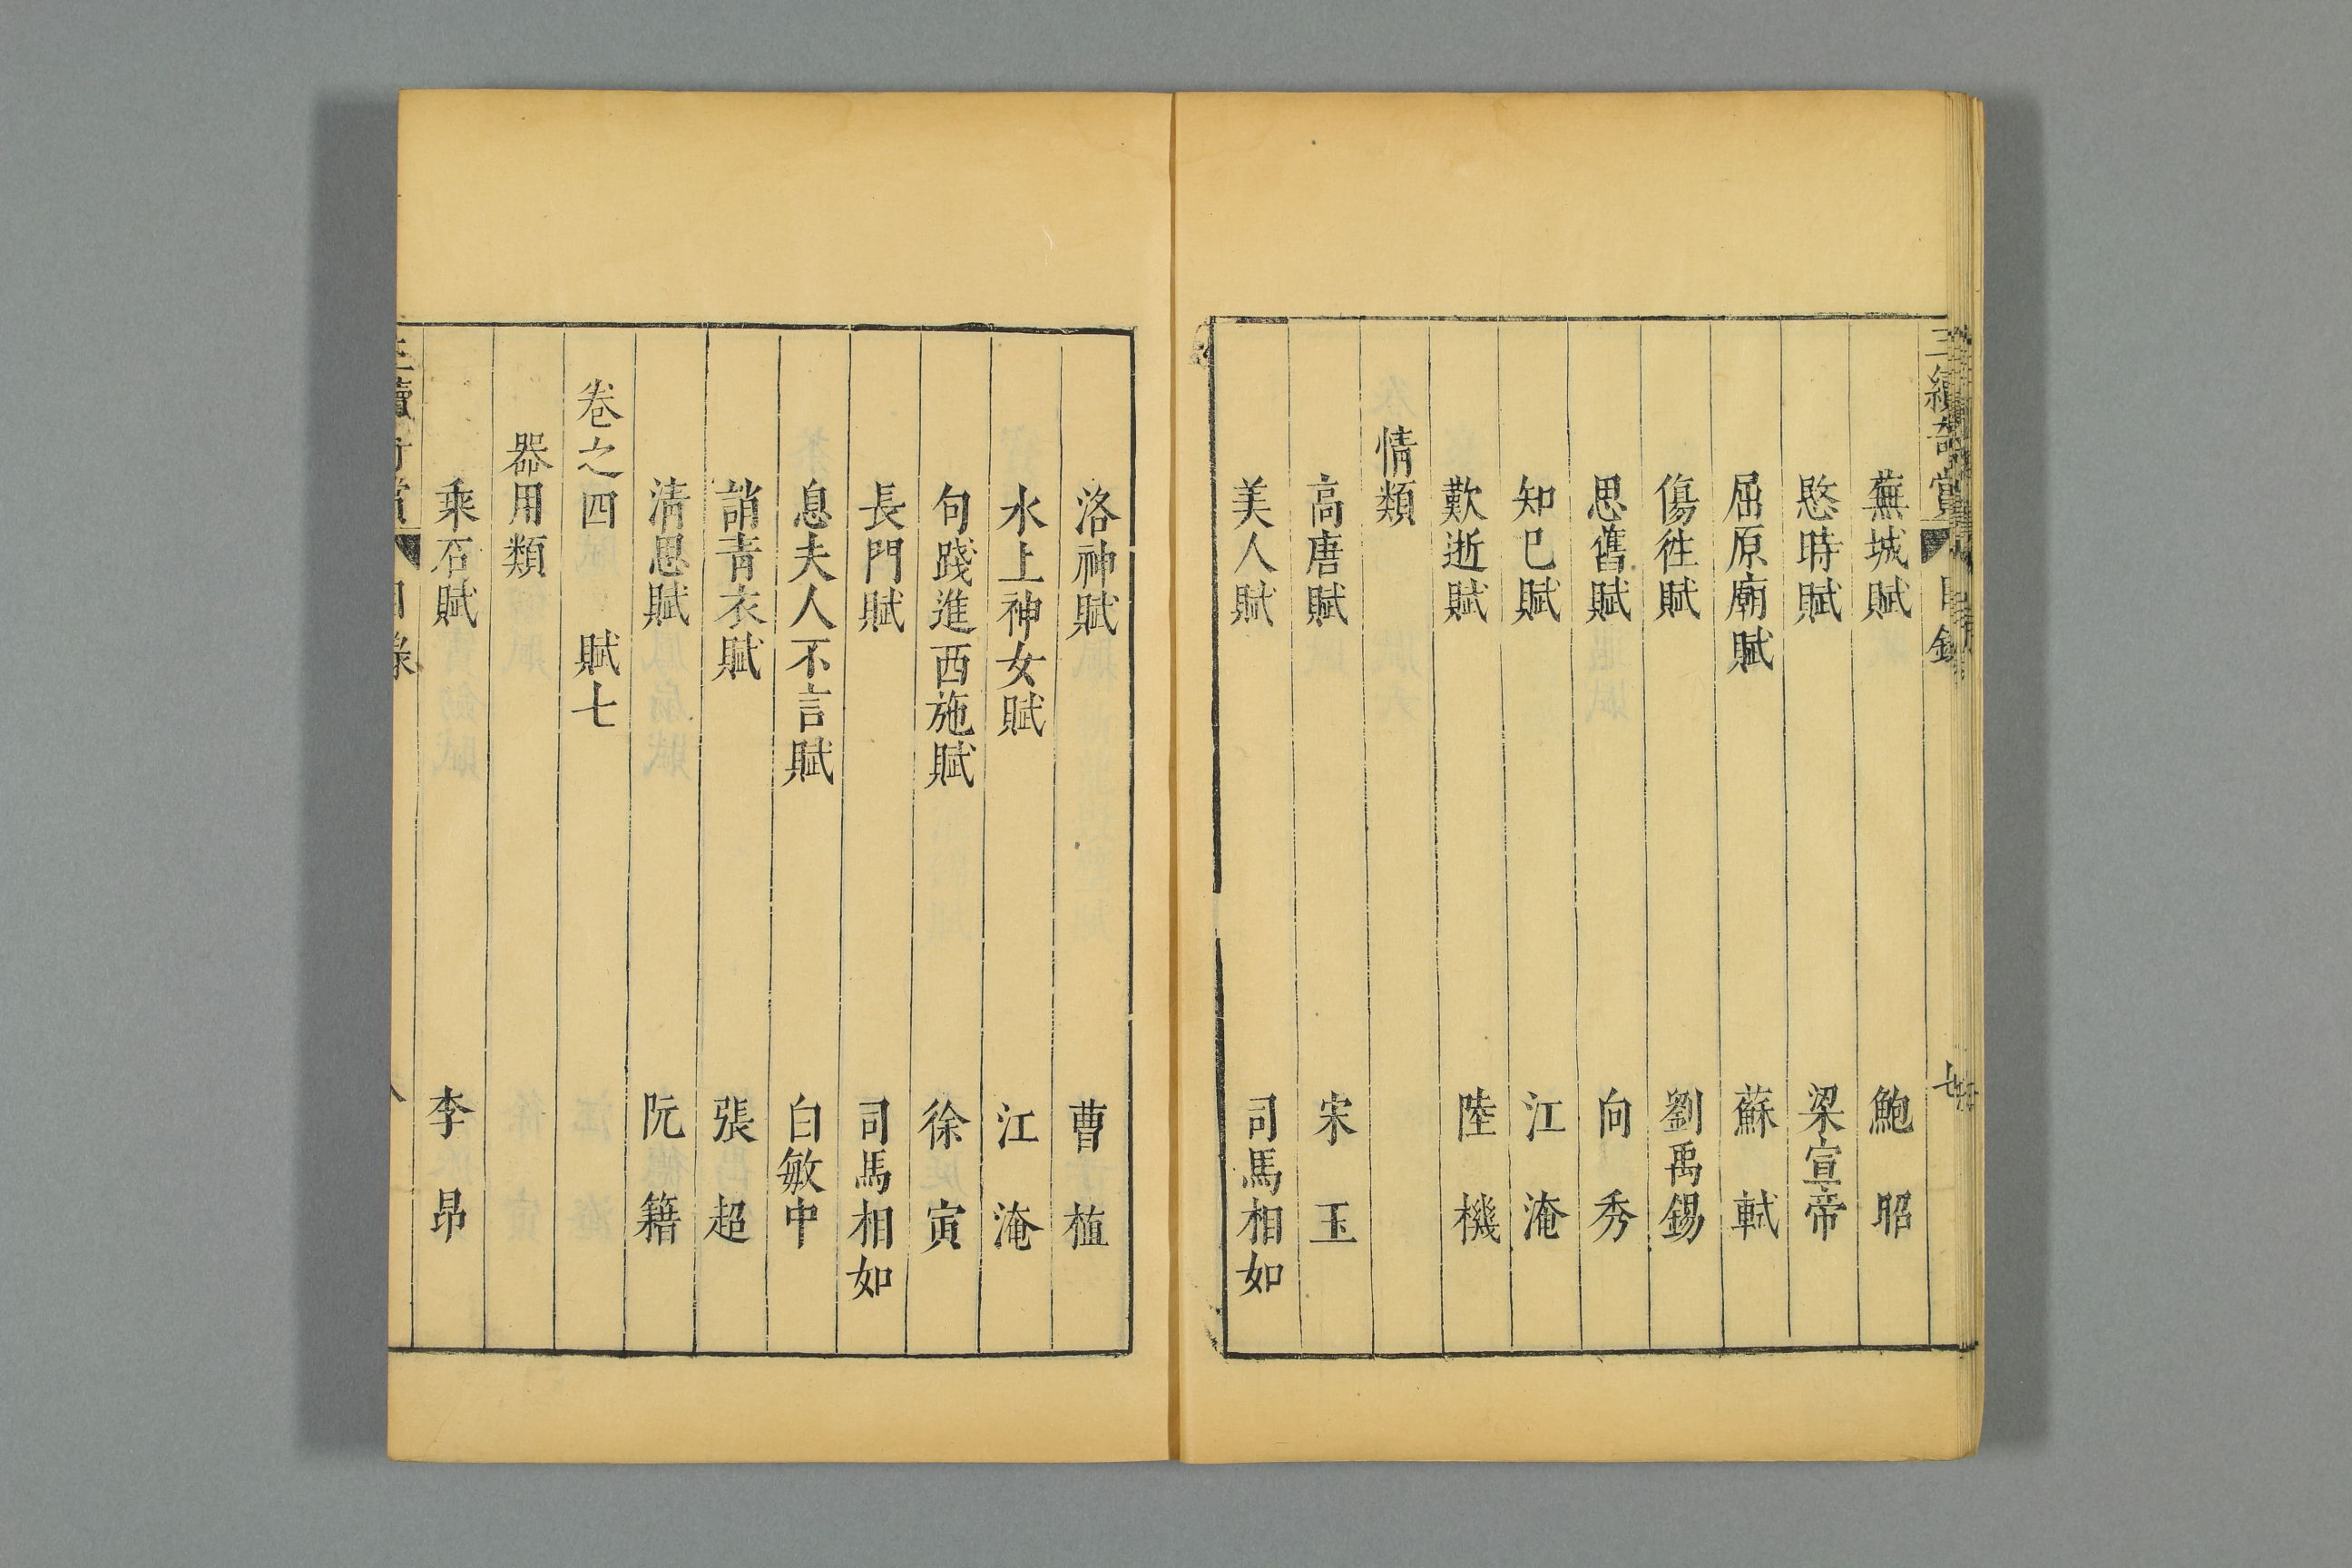 三續奇賞 目錄 七
蕪城賦 鮑昭
愍時賦 梁宣帝
屈原廟賦 蘇軾
傷徃賦 劉禹錫
思舊賦 向秀
知已賦 江淹
歎逝賦 陸機
情類
高唐賦 宋玉
美人賦 司馬相如
洛神賦 曹植
水上神女賦 江淹
句踐進西施賦 徐寅
長門賦 司馬相如
息夫人不言賦 白敏中
誚青衣賦 張超
清思賦 阮籍
卷之四 賦七
器用類
乘石賦 李昂